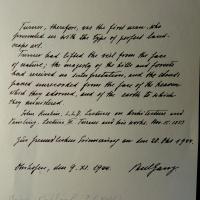 Turner, therefore, was the first man who
presented us with the type of perfect land-
scape art.
Turner had lifted the veil from the face
of nature; the majesty of the hills and forests
had received no interpretation, and the clouds
passed unrecorded from the face of the heaven
which they adorned, and of the earth to which
they ministered.
John Ruskin, L.L.D. Lectures on Architecture and
Painting. Lecture III. Turner and his works.
Zur freundlichen Erinnerung an den 20. Okt 1900.
den 9. XI. 1900.